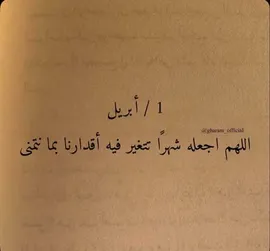 1 / أبريل
@gharam_official
اللهم اجعله شهرًا تتغير فيه أقدارنا بما نتمنى